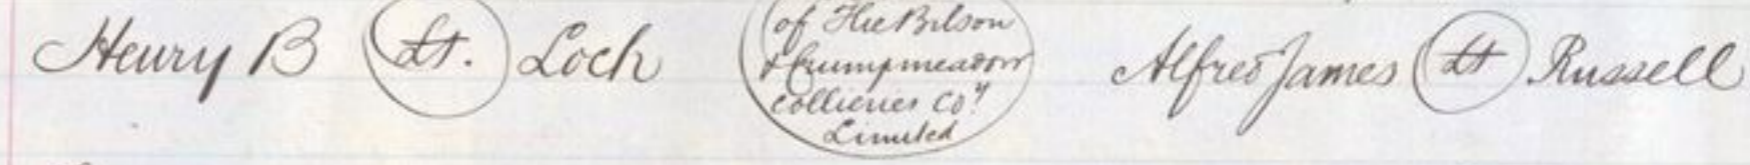 Henry B L.S. Loch
of The Bilson
& Crumpmeadow
Collieries Coy
Limited
Alfred James LS Russell